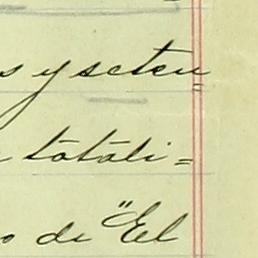 s y seten=
totali=
o de "El